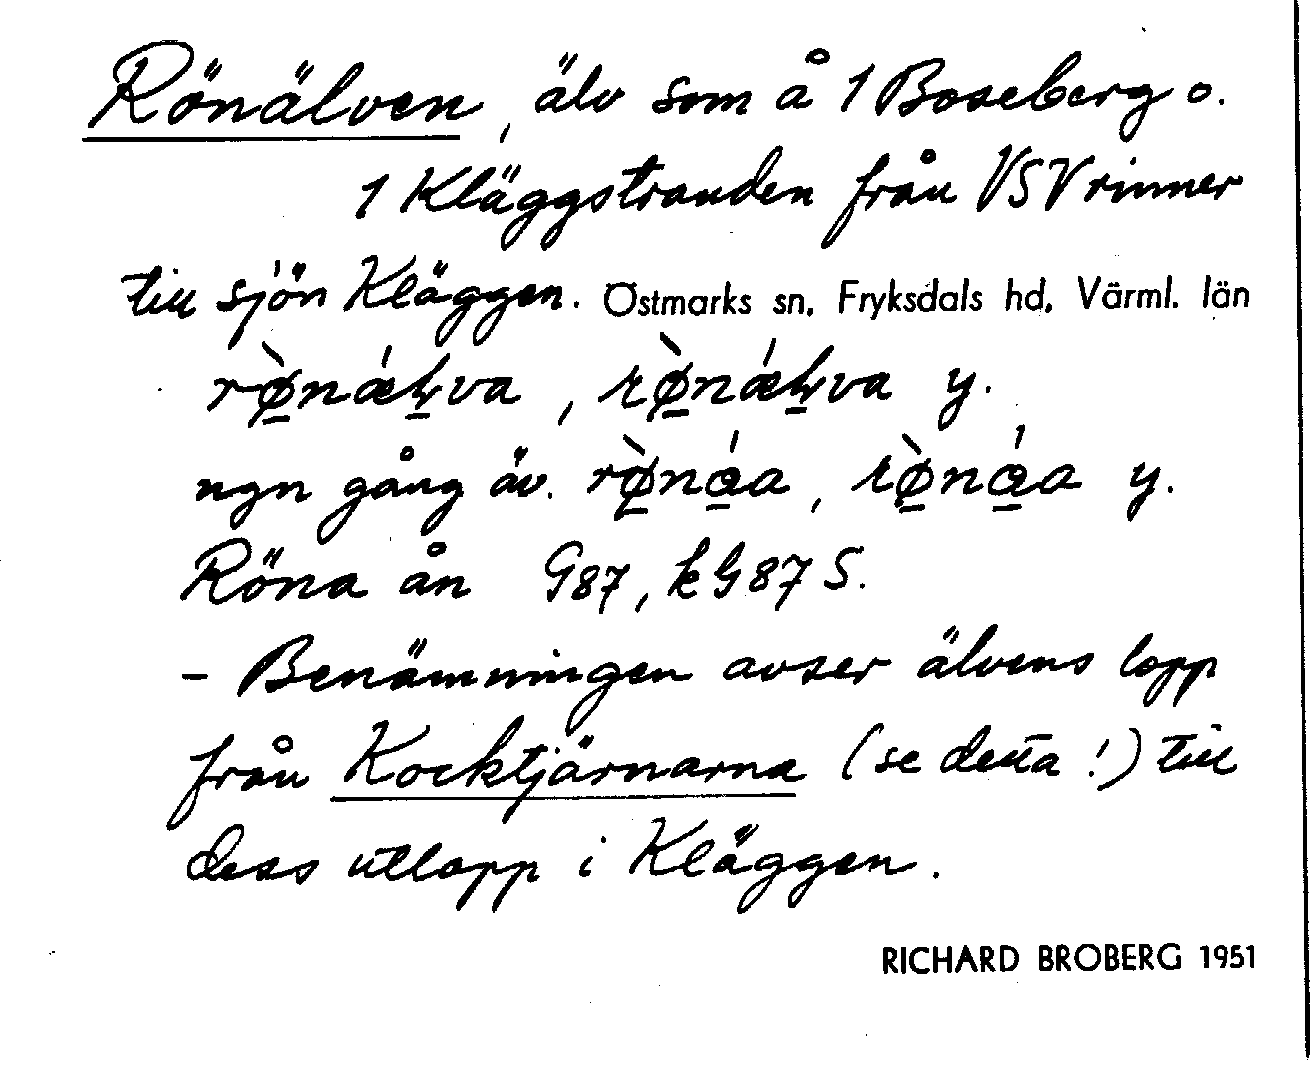 Rönälven, älv som å 1 Boseberg o.
1 Kläggstranden från VSV rinner
till sjön Kläggen. Östmarks sn, Fryksdals hd, Värml. län
rø̀nǽḷva, rø̀nǽḷva y.
ngn gång äv. rø̀náa, rø̀náa y.
Röna ån G87, kG87 S.
- Benämningen avser älvens lopp
från Kocktjärnarna (se detta!) till
dess utlopp i Kläggen.
RICHARD BROBERG 1951